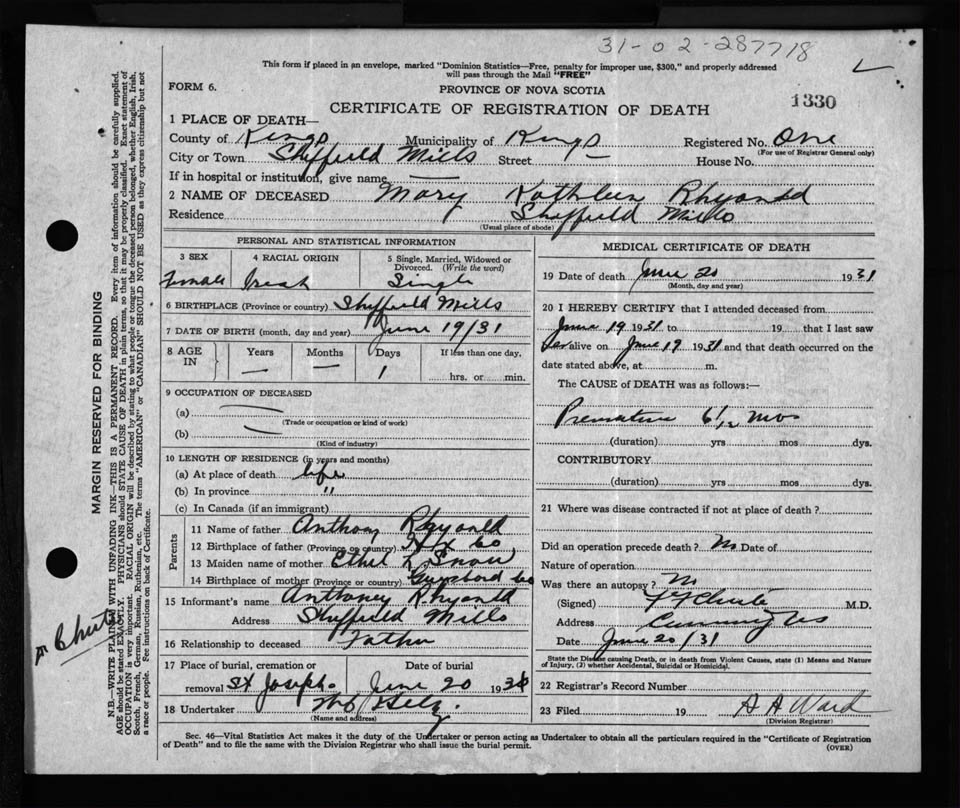 31-02-287718
This form if placed in an envelope, marked "Dominion Statistics—Free, penalty for improper use, $300," and properly addressed
will pass through the Mail "FREE"
FORM 6.
PROVINCE OF NOVA SCOTIA
CERTIFICATE OF REGISTRATION OF DEATH
1330
1 PLACE OF DEATH—
County of Kings Municipality of Kings Registered No. One
(For use of Registrar General only)
City or Town Sheffield Mills Street — House No.
If in hospital or institution, give name —
2 NAME OF DECEASED Mary Kathleen Rhyonld
Residence Sheffield Mills
(Usual place of abode)
PERSONAL AND STATISTICAL INFORMATION
3 SEX
Female
4 RACIAL ORIGIN
Irish
5 Single, Married, Widowed or
Divorced. (Write the word)
Single
6 BIRTHPLACE (Province or country) Sheffield Mills
7 DATE OF BIRTH (month, day and year) June 19/31
8 AGE
IN
Years
—
Months
—
Days
1
If less than one day,
hrs. or min.
9 OCCUPATION OF DECEASED
(a) —
(Trade or occupation or kind of work)
(b) —
(Kind of industry)
10 LENGTH OF RESIDENCE (in years and months)
(a) At place of death life
(b) In province "
(c) In Canada (if an immigrant)
Parents
11 Name of father Anthony Rhyonld
12 Birthplace of father (Province or country) Hfx Co
13 Maiden name of mother Ethel Snow
14 Birthplace of mother (Province or country) Guysboro Co
15 Informant's name Anthoney Rhyonld
Address Sheffield Mills
16 Relationship to deceased Father
17 Place of burial, cremation or
removal St Josephs
Date of burial
June 20 193
18 Undertaker
(Name and address)
MEDICAL CERTIFICATE OF DEATH
19 Date of death June 20 1931
(Month, day and year)
20 I HEREBY CERTIFY that I attended deceased from
June 19 1931 to 19 that I last saw
her alive on June 19 1931 and that death occurred on the
date stated above, at m.
The CAUSE of DEATH was as follows:—
Premature 6 1/2 mos
(duration) yrs mos dys.
CONTRIBUTORY
(duration) yrs mos dys.
21 Where was disease contracted if not at place of death?
Did an operation precede death? No Date of
Nature of operation
Was there an autopsy? No
(Signed) Chute M.D.
Address Canning NS
Date June 20/31
State the Disease causing Death, or in death from Violent Causes, state (1) Means and Nature
of Injury, (2) whether Accidental, Suicidal or Homicidal.
22 Registrar's Record Number
23 Filed 19 A A Ward
(Division Registrar)
Sec. 46—Vital Statistics Act makes it the duty of the Undertaker or person acting as Undertaker to obtain all the particulars required in the "Certificate of Registration
of Death" and to file the same with the Division Registrar who shall issue the burial permit.
(OVER)
MARGIN RESERVED FOR BINDING
N.B.—WRITE PLAINLY WITH UNFADING INK—THIS IS A PERMANENT RECORD. Every item of information should be carefully supplied.
AGE should be stated EXACTLY. PHYSICIANS should STATE CAUSE OF DEATH in plain terms, so that it may be properly classified. Exact statement of
OCCUPATION is very important. RACIAL ORIGIN will be described by stating to what people or tongue the deceased person belonged, whether English, Irish,
Scotch, French, German, Russian, Ruthenian, etc. The terms "AMERICAN" or "CANADIAN" SHOULD NOT BE USED as they express citizenship but not
a race or people. See instructions on back of Certificate.
Dr Chute